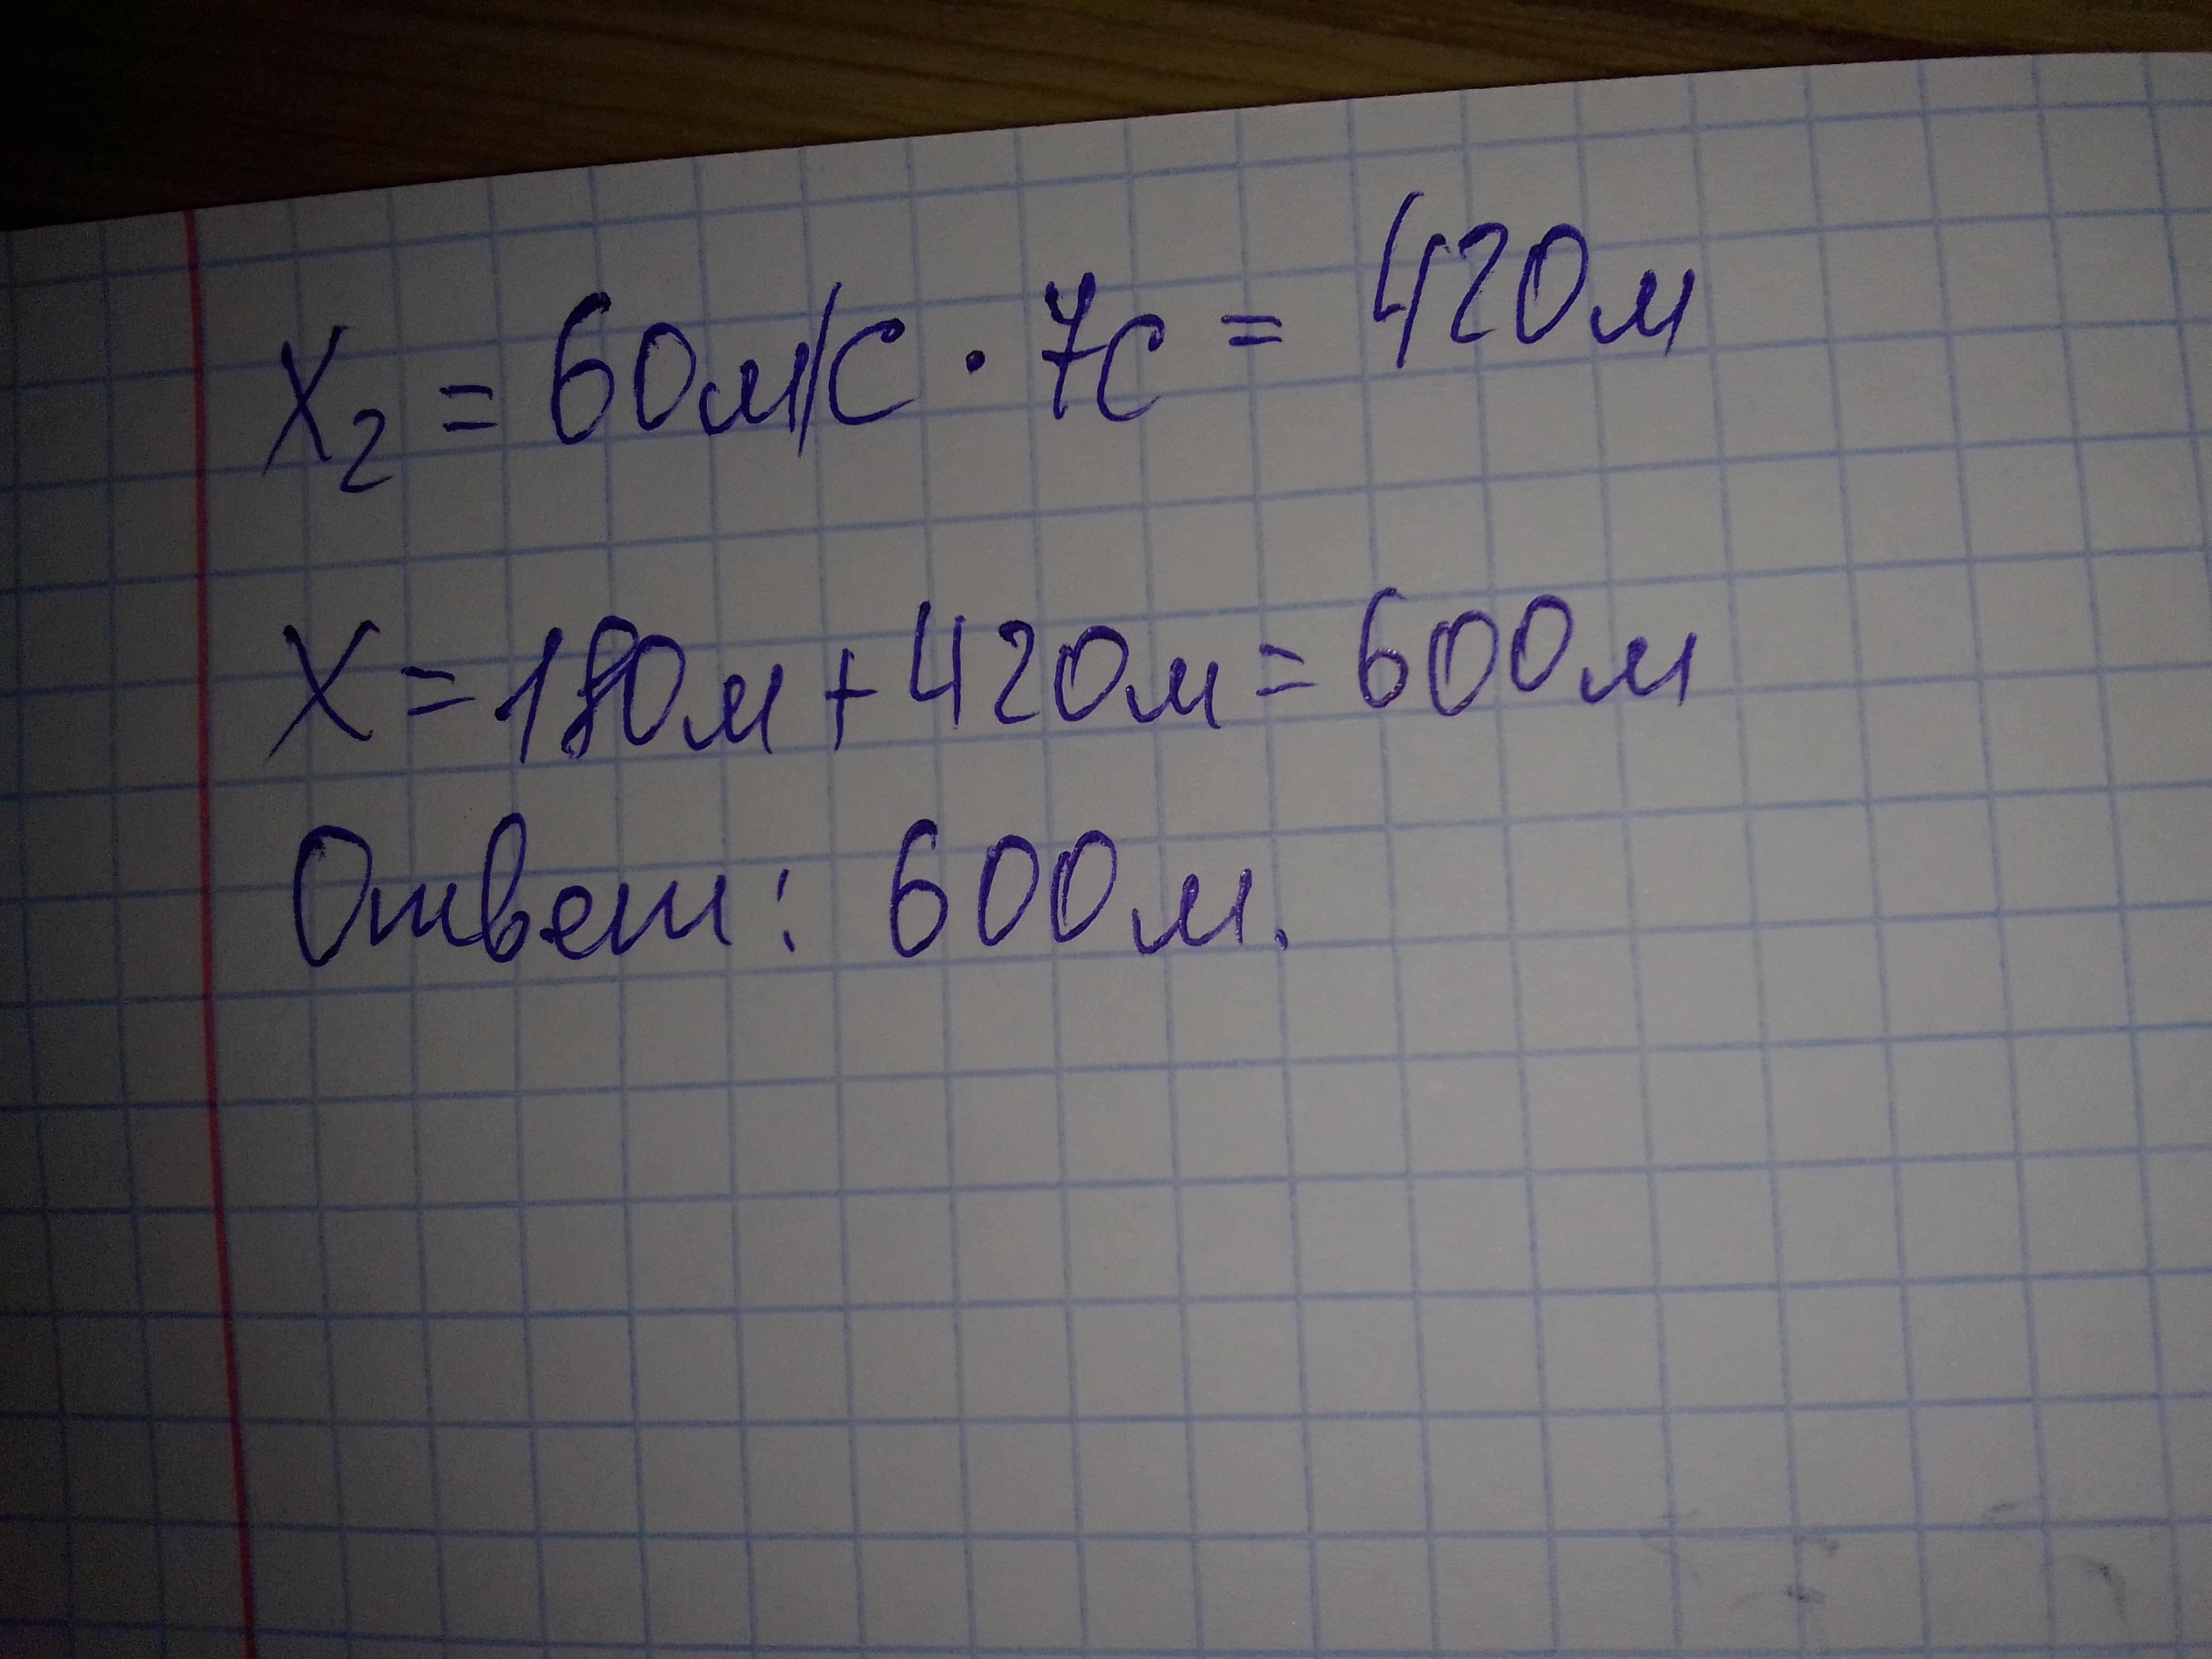 X₂ = 60м/с · 7с = 420м
X = 180м + 420м = 600м
Ответ: 600м.